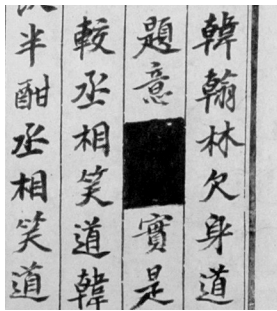 韓翰林欠身道
題意實是
較丞相笑道韓
半酣丞相笑道